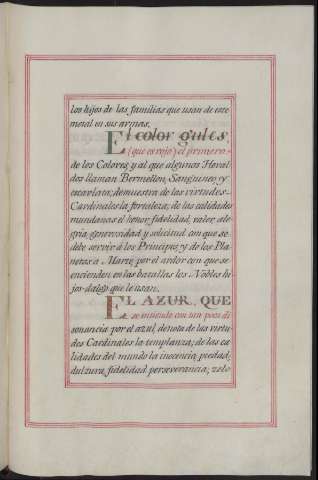 los hijos de las familias que usan de este
metal en sus armas.
El color gules,
(que es rojo) el primero
de los Colores, y al que algunos Heral
dos llaman Bermellon, Sanguineo y
escarlata; demuestra de las virtudes
Cardinales la fortaleza; de las calidades
mundanas el honor, fidelidad, valor, ale
gria, generosidad y solicitud con que se
debe servir á los Principes; y de los Pla
netas a Marte, por el ardor con que se
encienden en las batallas los Nobles hi
jos-dalgo que le usan.
EL AZUR, QUE
se entiende con un poco di
sonancia por el azul, denota de las virtu
des Cardinales la templanza; de las ca
lidades del mundo la inocencia, piedad,
dulzura, fidelidad perseverancia, zelo